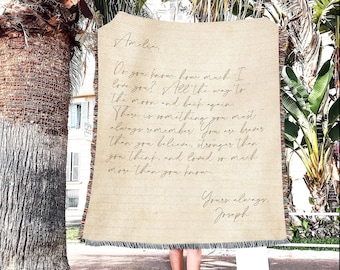 Amelia,
Do you know how much I
love you? All the way to
the moon and back again.
There is something you must
always remember. You are braver
than you believe, stronger than
you think, and loved so much
more than you know.
Yours always,
Joseph